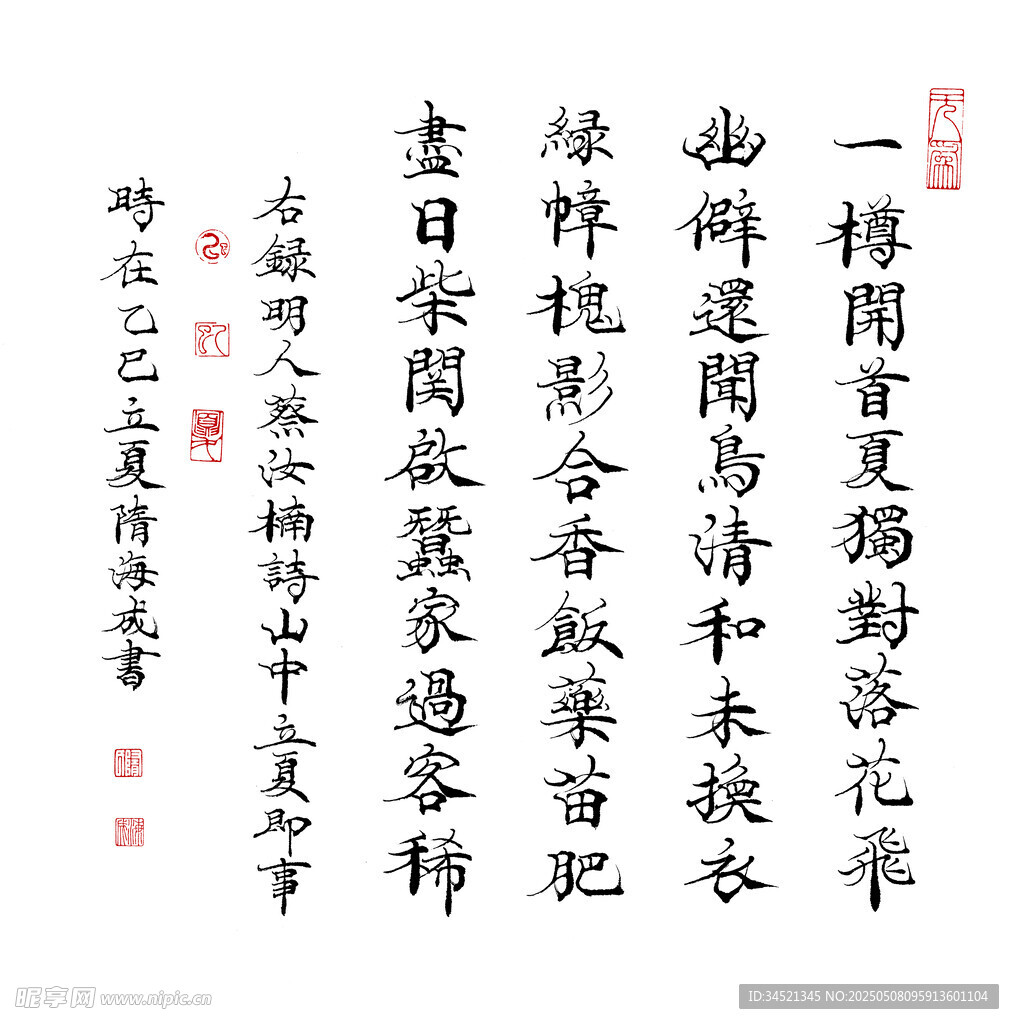 一樽開首夏獨對落花飛
幽僻還聞鳥清和未換衣
緑幛槐影合香飯藥苗肥
盡日柴関啟蠶家過客稀
右録明人蔡汝楠詩山中立夏即事
時在乙巳立夏隋海成書
昵享网 www.nipic.cn
ID:34521345 NO:20250508095913601104